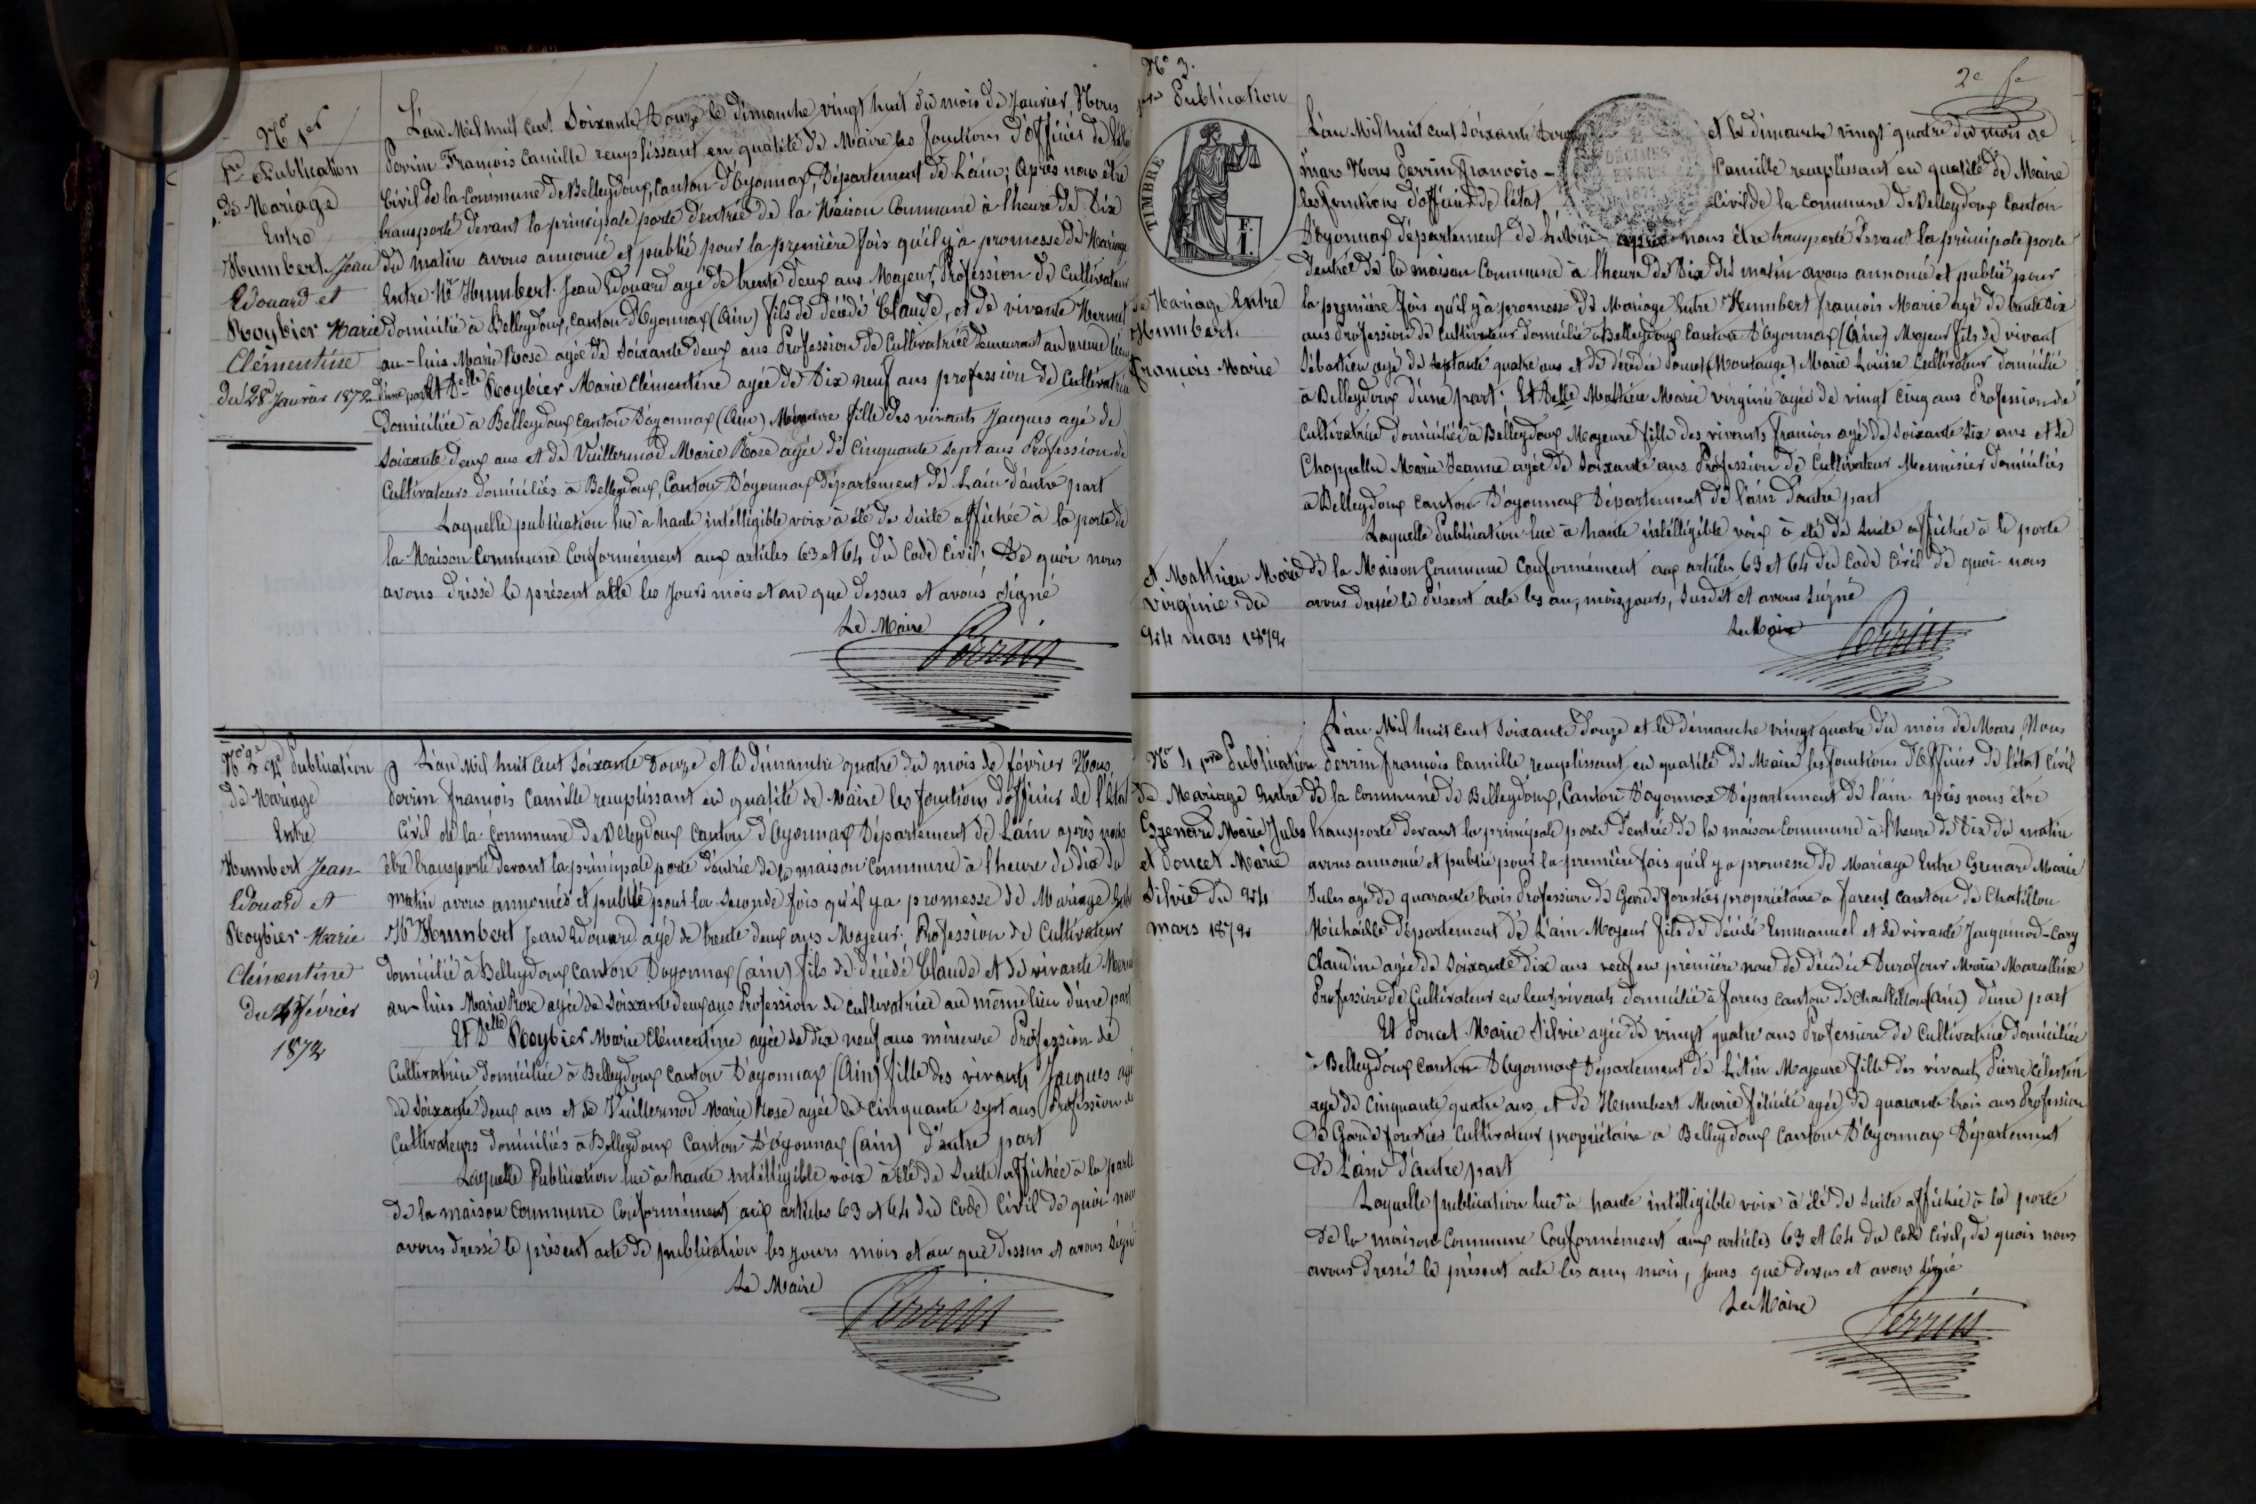 No 1er
1re Publication
de Mariage
Entre
Humbert Jean
Edouard et
Roybier Marie
Clémentine
du 28 Janvier 1872
L'an Mil huit cent Soixante Douze le dimanche vingt huit du mois de Janvier, Nous
Perrin François Camille remplissant en qualité de Maire les fonctions d'officier de l'état
Civil de la Commune de Belleydoux, Canton d'Oyonnax, Département de l'ain; Après nous être
transporté devant la principale porte d'entrée de la Maison Commune à l'heure de Dix
du matin avons annoncé et publié pour la première fois qu'il y a promesse de Mariage
Entre Mr Humbert Jean Edouard agé de trente deux ans Majeur, Profession de Cultivateur
domicilié à Belleydoux, canton d'Oyonnax (Ain) fils de décédé Claude, et de vivante Mermet
au-luis Marie Rose agée de Soixante deux ans Profession de Cultivatrice demeurant au même lieu
d'une part Et Delle Roybier Marie Clémentine agée de Dix neuf ans profession de Cultivatrice
Domiciliée à Belleydoux canton d'oyonnax (Ain) Mineure fille des vivants Jacques agé de
Soixante deux ans et de Vuillermod Marie Rose agée de Cinquante Sept ans Profession de
Cultivateurs domiciliés à Belleydoux, Canton D'oyonnax département de L'ain d'autre part
Laquelle publication lue à haute intélligible voix à été de Suite affichée à la porte de
la Maison Commune Conformément aux articles 63 et 64 du Code Civil, De quoi nous
avons dréssé le présent acte les Jours mois et an que dessus et avons Signé
Le Maire
Perrin
No 2 2e Publication
de Mariage
Entre
Humbert Jean
Edouard et
Roybier Marie
Clémentine
du 4 février
1872
L'an Mil huit Cent Soixante Douze et le dimanche quatre du mois de février Nous
Perrin françois Camille remplissant en qualité de Maire les fonctions d'officier de l'état
Civil de la Commune de Belleydoux Canton d'Oyonnax Département de L'ain après nous
être transporté devant la principale porte d'entrée de la maison Commune à l'heure de dix du
matin avons annoncés et publié pour la Seconde fois qu'il y a promesse de Mariage Entre
Mr Humbert Jean Edouard agé de trente deux ans Majeur, Profession de Cultivateur
domicilié à Belleydoux canton D'oyonnax (ain) fils de décédé Claude et de vivante Mermet
au-luis Marie Rose agée de Soixante deux ans Profession de cultivatrice au même lieu d'une part
Et Delle Roybier Marie Clémentine agée de Dix neuf ans mineure Profession de
Cultivatrice domiciliée à Belleydoux canton D'oyonnax (Ain) fille des vivants Jacques agé
de Soixante deux ans et de Vuillermod Marie Rose agée de Cinquante Sept ans Profession de
Cultivateurs domiciliés à Belleydoux Canton D'oyonnax (ain) d'autre part
Laquelle Publication lue à haute intélligible voix à été de Suite affichée à la porte
de la maison Commune Conformément aux articles 63 et 64 du Code Civil de quoi nous
avons dressé le présent acte de publication les jours mois et an que dessus et avons Signé
Le Maire
Perrin
2e f
No 3.
1re Publication
TIMBRE
de Mariage Entre
Humbert
François Marie
et Mathieu Marie
Virginie du
24 mars 1872
L'an Mil huit cent Soixante Douze et le dimanche vingt quatre du mois de
mars Nous Perrin françois - Camille remplissant en qualité de Maire
les fonctions d'officier de l'état Civil de la Commune de Belleydoux Canton
D'Oyonnax département de L'ain après nous être transporté devant la principale porte
d'entrée de la maison Commune à l'heure de Dix du matin avons annoncé et publié pour
la première fois qu'il y a promesse de Mariage Entre Humbert françois Marie agé de trente Dix
ans Profession de Cultivateur domicilié à Belleydoux Canton D'oyonnax (Ain) Majeur fils de vivant
Sébastien agé de Septante quatre ans et de décédée Poncet (Montange) Marie Louise Cultivateur domicilié
à Belleydoux d'une part; Et Delle Mathieu Marie virginie agée de vingt cinq ans Profession de
Cultivatrice domiciliée à Belleydoux Majeure fille des vivants françois agé de Soixante Six ans et de
Chapuellu Marie Jeanne agée de Soixante ans Profession de Cultivateur Menuisier domiciliés
à Belleydoux canton D'oyonnax Département de l'ain d'autre part
Laquelle Publication lue à haute intélligible voix à été de Suite affichée à la porte
de la Maison Commune Conformément aux articles 63 et 64 du Code Civil de quoi nous
avons dressé le Présent acte les an, mois, jours, Susdit et avons Signé
Le Maire
Perrin
No 4 1re Publication
de Mariage Entre
Grenard Marie Jules
et Poncet Marie
Silvie du 24
mars 1872
L'an Mil huit cent Soixante douze et le dimanche vingt quatre du mois de Mars, Nous
Perrin françois Camille remplissant en qualité de Maire les fonctions d'Officier de l'état Civil
de la Commune de Belleydoux, Canton D'oyonnax Département de l'ain après nous être
transporté devant la principale porte d'entrée de la maison Commune à l'heure de Dix du matin
avons annoncé et publié pour la première fois qu'il y a promesse de Mariage Entre Grenard Marie
Jules agé de quarante trois Profession de Garde forestier propriétaire à forens canton de Chatillon
Michaille Département de L'ain Majeur fils de décédé Emmanuel et de vivante Jacquinod-Cary
Claudine agée de Soixante dix ans veuf en première noce de décédée Durafour Marie Marcelline
Profession de Cultivateur en leur vivants domicilié à forens canton de Chatillon (Ain) d'une part
Et Poncet Marie Silvie agée de vingt quatre ans Profession de Cultivatrice domiciliée
à Belleydoux canton D'Oyonnax Département de L'Ain Majeure fille des vivants Pierre Célestin
agé de Cinquante quatre ans et de Humbert Marie félicité agée de quarante trois ans Profession
de Garde forestier Cultivateur propriétaire à Belleydoux Canton D'Oyonnax Département
de L'ain d'autre part
Laquelle publication lue à haute intélligible voix à été de Suite affichée à la porte
de la maison Commune Conformément aux articles 63 et 64 du Code Civil, de quoi nous
avons dressé le présent acte les an, mois, jours que dessus et avons Signé
Le Maire
Perrin